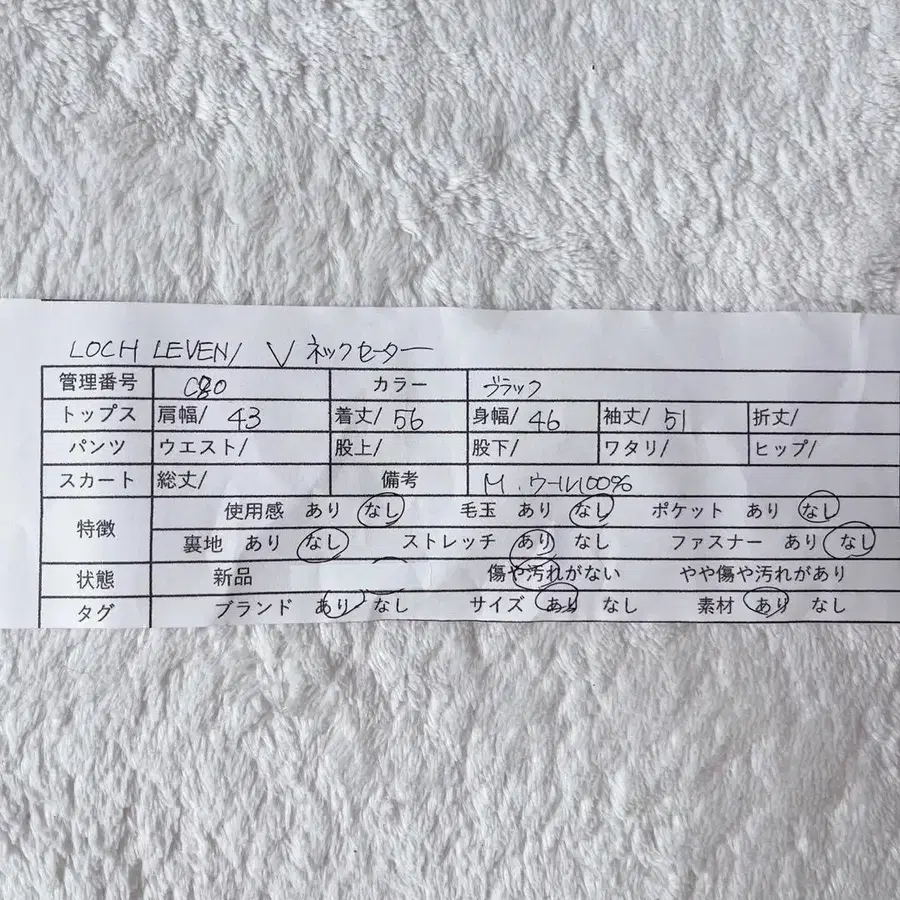 LOCH LEVEN/ Vネックセーター
管理番号 C80 カラー ブラック
トップス 肩幅/ 43 着丈/ 56 身幅/ 46 袖丈/ 51 折丈/
パンツ ウエスト/ 股上/ 股下/ ワタリ/ ヒップ/
スカート 総丈/ 備考 M.ウール100%
特徴 使用感 あり なし 毛玉 あり なし ポケット あり なし
裏地 あり なし ストレッチ あり なし ファスナー あり なし
状態 新品 傷や汚れがない やや傷や汚れがあり
タグ ブランド あり なし サイズ あり なし 素材 あり なし